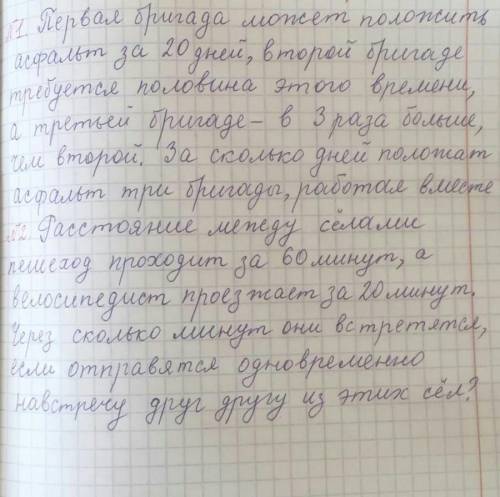 №1. Первая бригада может положить
асфальт за 20 дней, второй бригаде
требуется половина этого времени,
а третьей бригаде - в 3 раза больше,
чем второй. За сколько дней положат
асфальт три бригады, работая вместе
№2. Расстояние между сёлами
пешеход проходит за 60 минут, а
велосипедист проезжает за 20 минут.
Через сколько минут они встретятся,
если отправятся одновременно
навстречу друг другу из этих сёл?